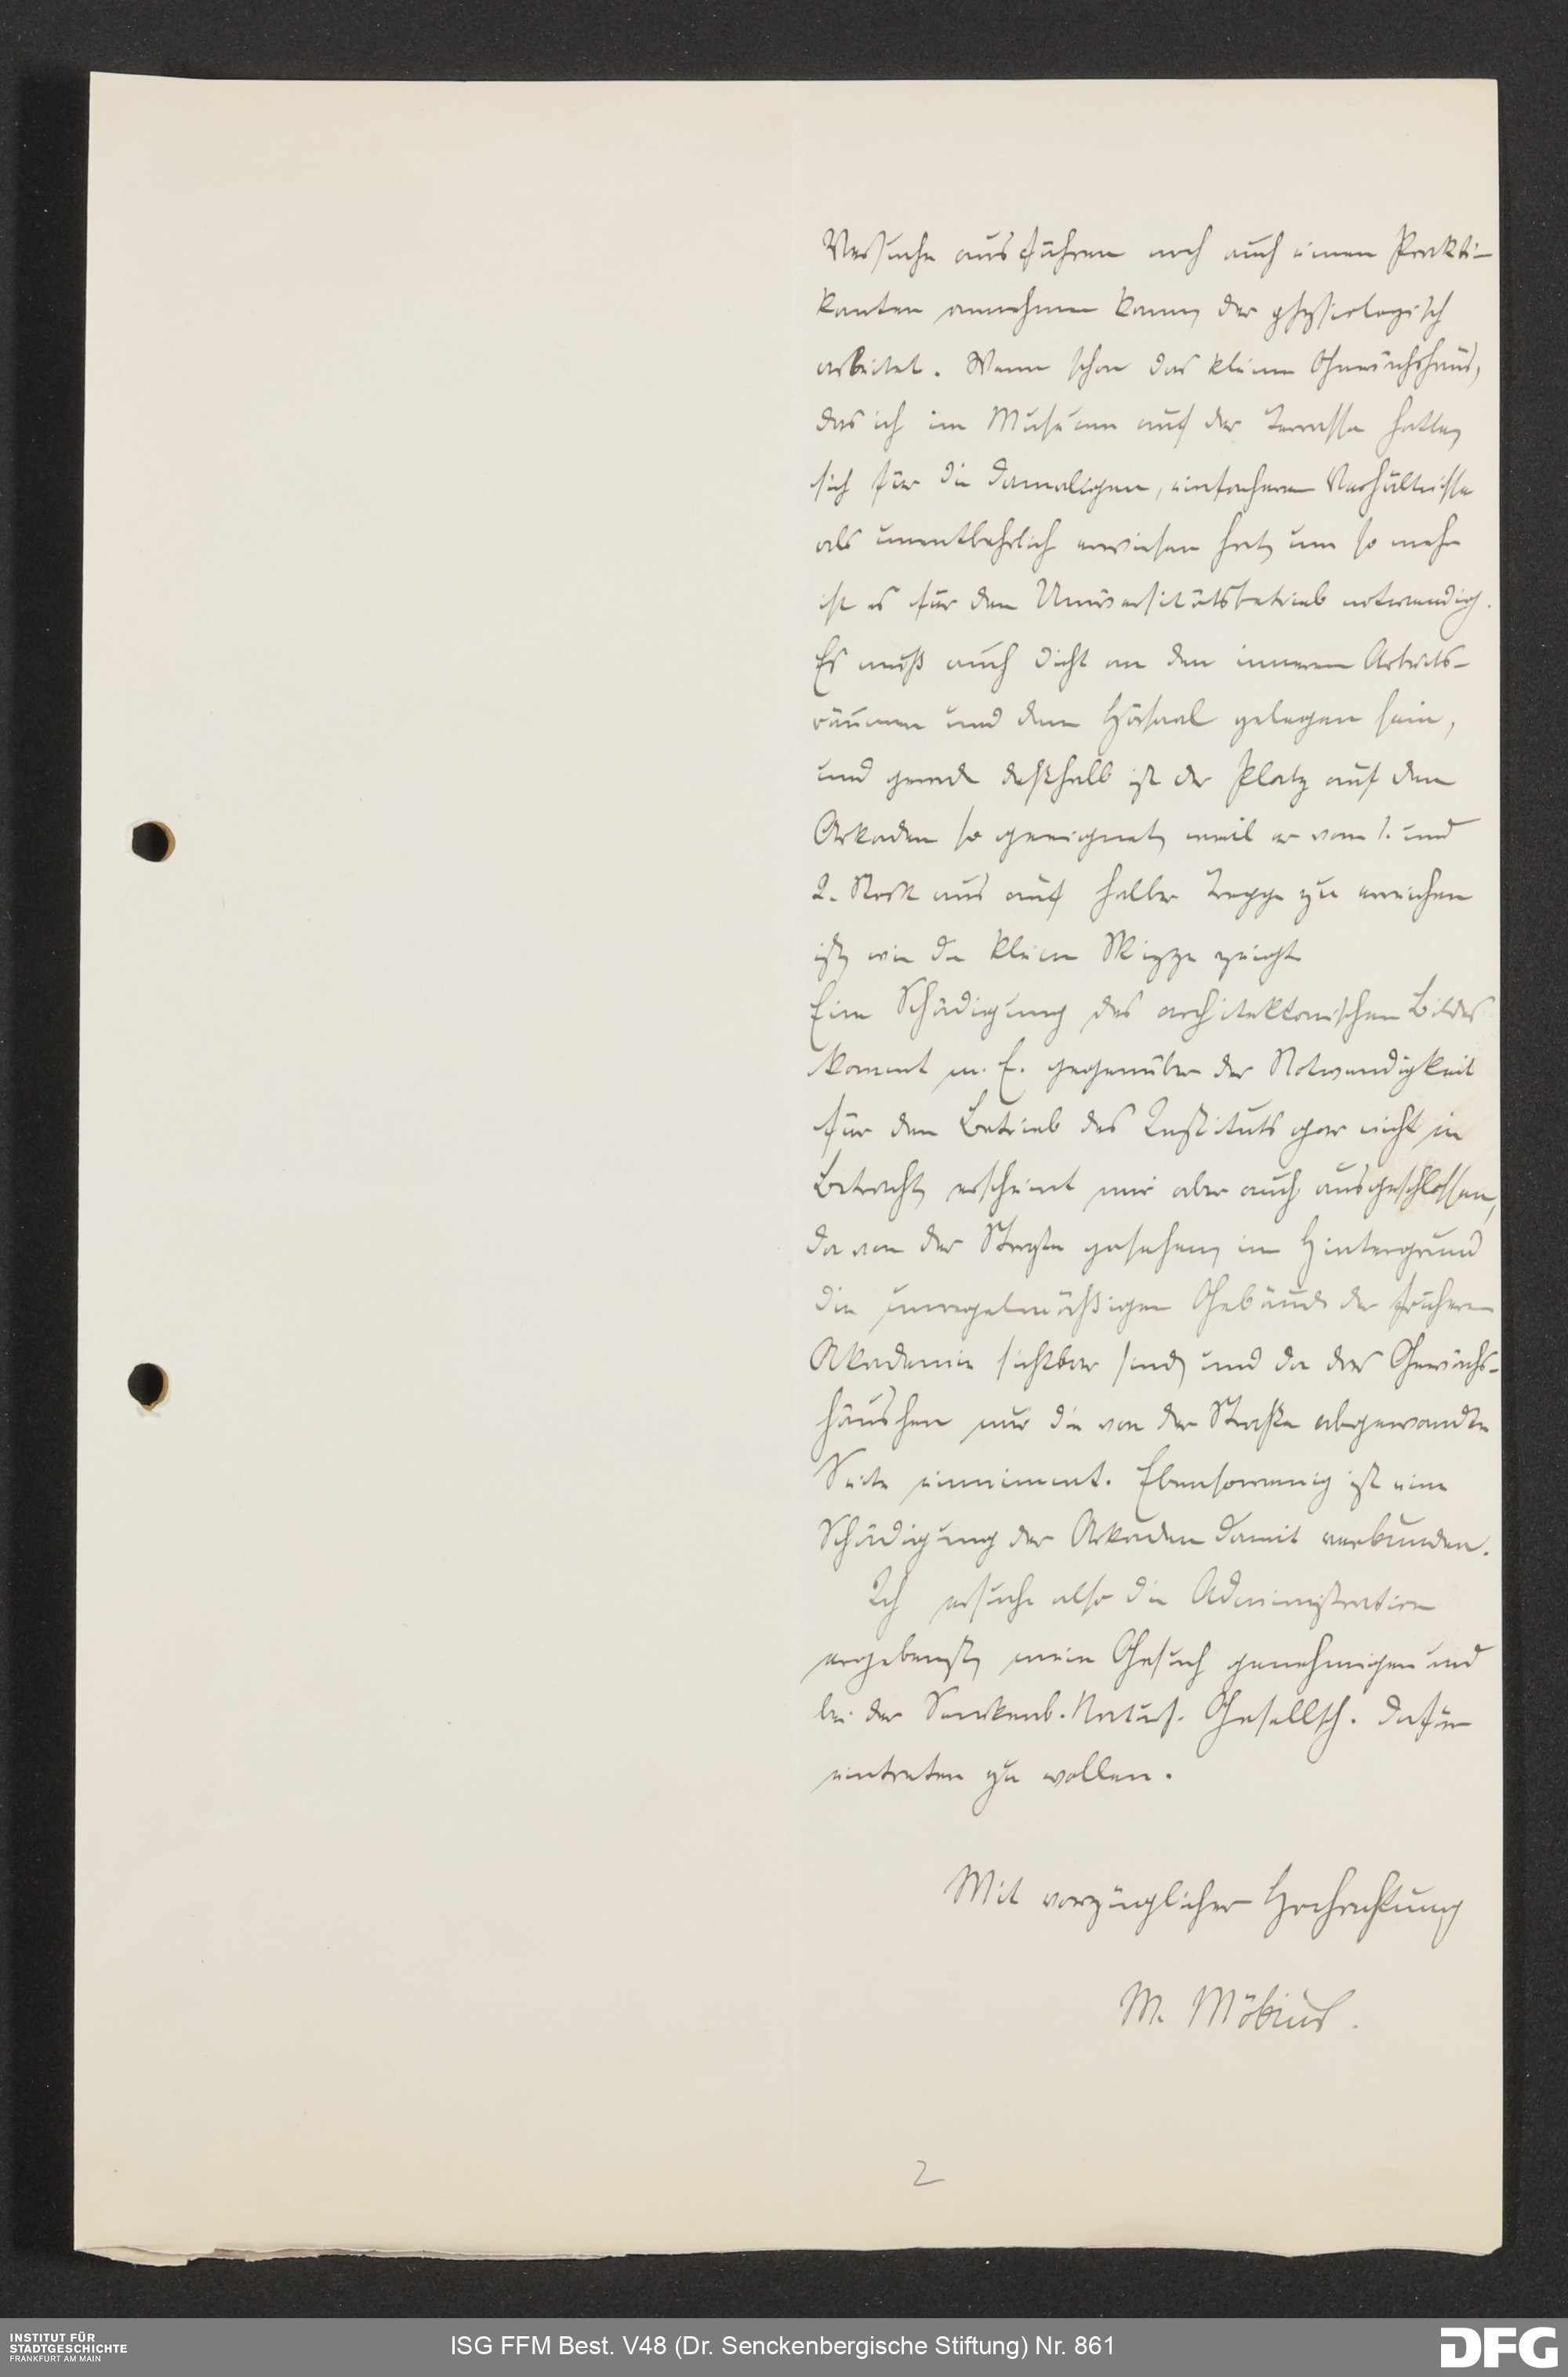 Versuche ausführen noch auch einen Prakti-
kanten annehmen kann, der physiologisch
arbeitet. Wenn schon das kleine Gewächshaus,
das ich im Museum auf der Terrasse hatte,
sich für die damaligen, einfacheren Verhältnisse
als unentbehrlich erwiesen hat, um so mehr
ist es für den Universitätsbetrieb notwendig.
Es muß auch dicht an den inneren Arbeits-
räumen und dem Hörsaal gelegen sein,
und gerade deßhalb ist der Platz auf den
Arkaden so geeignet, weil er vom 1. und
2. Stock aus auf halber Treppe zu erreichen
ist, wie die kleine Skizze zeigt.
Eine Schädigung des architektonischen Bildes
kommt m. E. gegenüber der Notwendigkeit
für den Betrieb des Instituts gar nicht in
Betracht, erscheint mir aber auch ausgeschlossen,
da von der Straße gesehen, im Hintergrund
die unregelmäßigen Gebäude der früheren
Akademie sichtbar sind, und da das Gewächs-
häuschen nur die von der Straße abgewandte
Seite einnimmt. Ebensowenig ist eine
Schädigung der Arkaden damit verbunden.
Ich ersuche also die Administration
ergebenst, mein Gesuch genehmigen und
bei der Senckenb. Naturf. Gesellsch. dafür
eintreten zu wollen.
Mit vorzüglicher Hochachtung
M. Möbius.
2
INSTITUT FÜR
STADTGESCHICHTE
FRANKFURT AM MAIN
ISG FFM Best. V48 (Dr. Senckenbergische Stiftung) Nr. 861
DFG